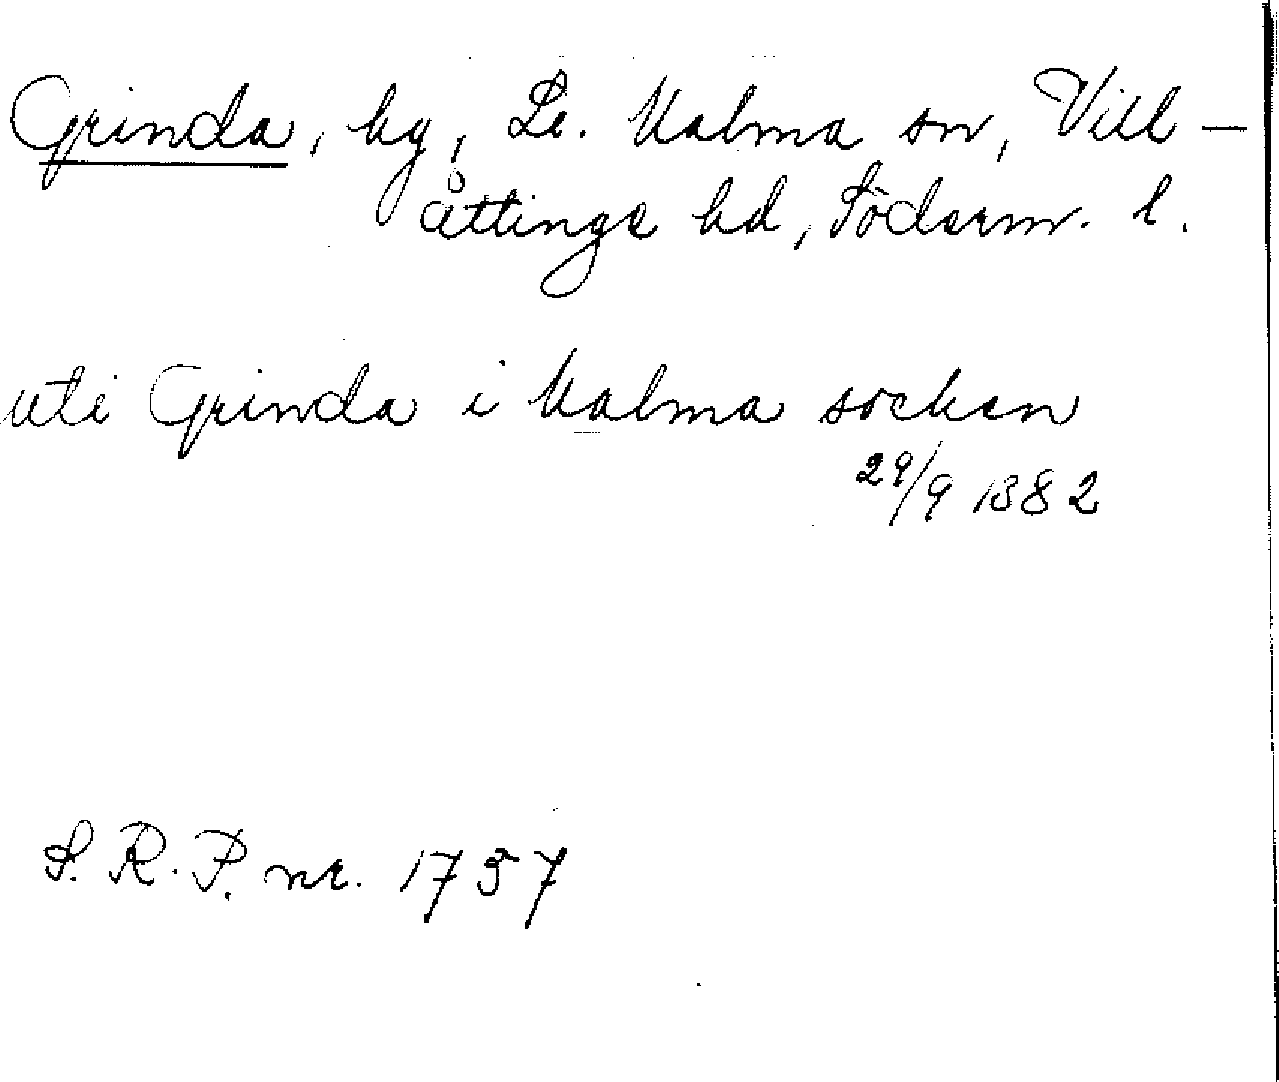 Grinda, by, L:a. Malma sn, Vill-
åttinge hd, Söderm. l.
uti Grinda i Malma socken
29/9 1382
S. R. P. nr. 1757